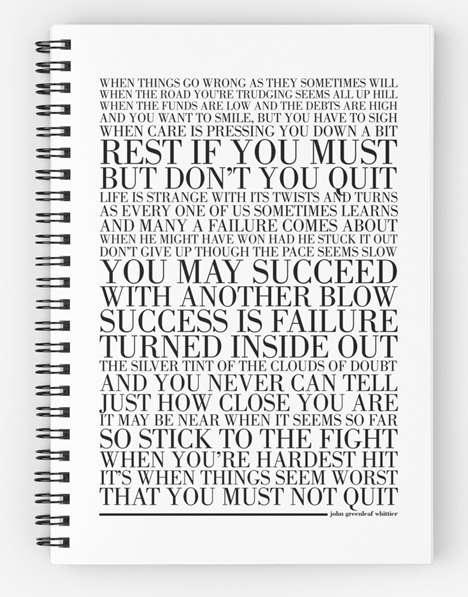 WHEN THINGS GO WRONG AS THEY SOMETIMES WILL
WHEN THE ROAD YOU'RE TRUDGING SEEMS ALL UP HILL
WHEN THE FUNDS ARE LOW AND THE DEBTS ARE HIGH
AND YOU WANT TO SMILE, BUT YOU HAVE TO SIGH
WHEN CARE IS PRESSING YOU DOWN A BIT
REST IF YOU MUST
BUT DON'T YOU QUIT
LIFE IS STRANGE WITH ITS TWISTS AND TURNS
AS EVERY ONE OF US SOMETIMES LEARNS
AND MANY A FAILURE COMES ABOUT
WHEN HE MIGHT HAVE WON HAD HE STUCK IT OUT
DON'T GIVE UP THOUGH THE PACE SEEMS SLOW
YOU MAY SUCCEED
WITH ANOTHER BLOW
SUCCESS IS FAILURE
TURNED INSIDE OUT
THE SILVER TINT OF THE CLOUDS OF DOUBT
AND YOU NEVER CAN TELL
JUST HOW CLOSE YOU ARE
IT MAY BE NEAR WHEN IT SEEMS SO FAR
SO STICK TO THE FIGHT
WHEN YOU'RE HARDEST HIT
IT'S WHEN THINGS SEEM WORST
THAT YOU MUST NOT QUIT
john greenleaf whittier